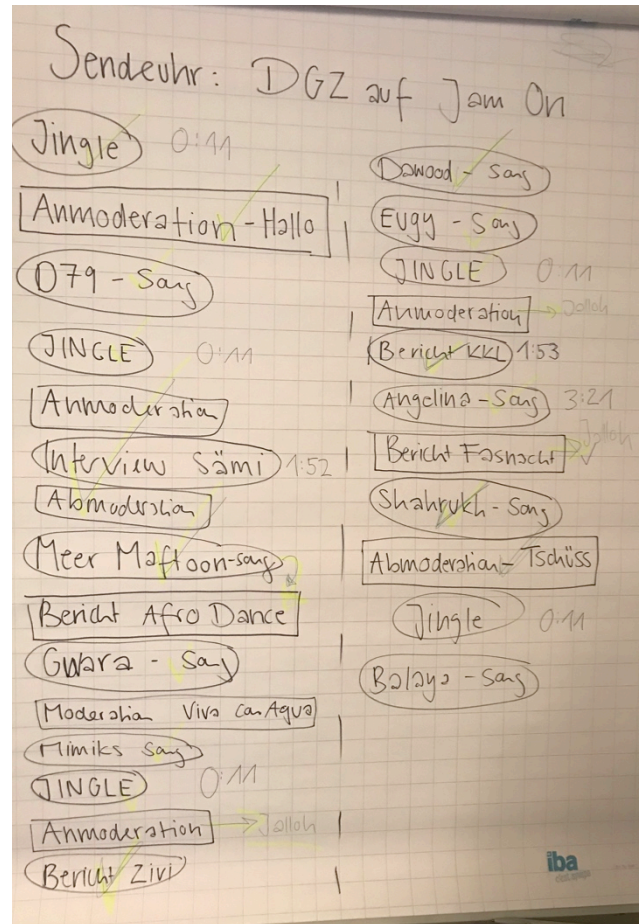 Sendeuhr: DGZ auf Jam On
Jingle 0:11
Anmoderation - Hallo
D79 - Song
JINGLE 0:11
Anmoderation
Interview Sämi 1:52
Abmoderation
Meer Maftoon-song ?
Bericht Afro Dance
Gwara - Song
Moderation Viva con Agua
Mimiks Song
JINGLE 0:11
Anmoderation → Jalloh
Bericht Zivi
Dawood - Song
Eugy - Song
JINGLE 0:11
Anmoderation → Jalloh
Bericht KKL 1:53
Angelina - Song 3:21
Bericht Fasnacht → Jalloh
Shahrukh - Song
Abmoderation - Tschüss
Jingle 0:11
Balaya - Song
iba